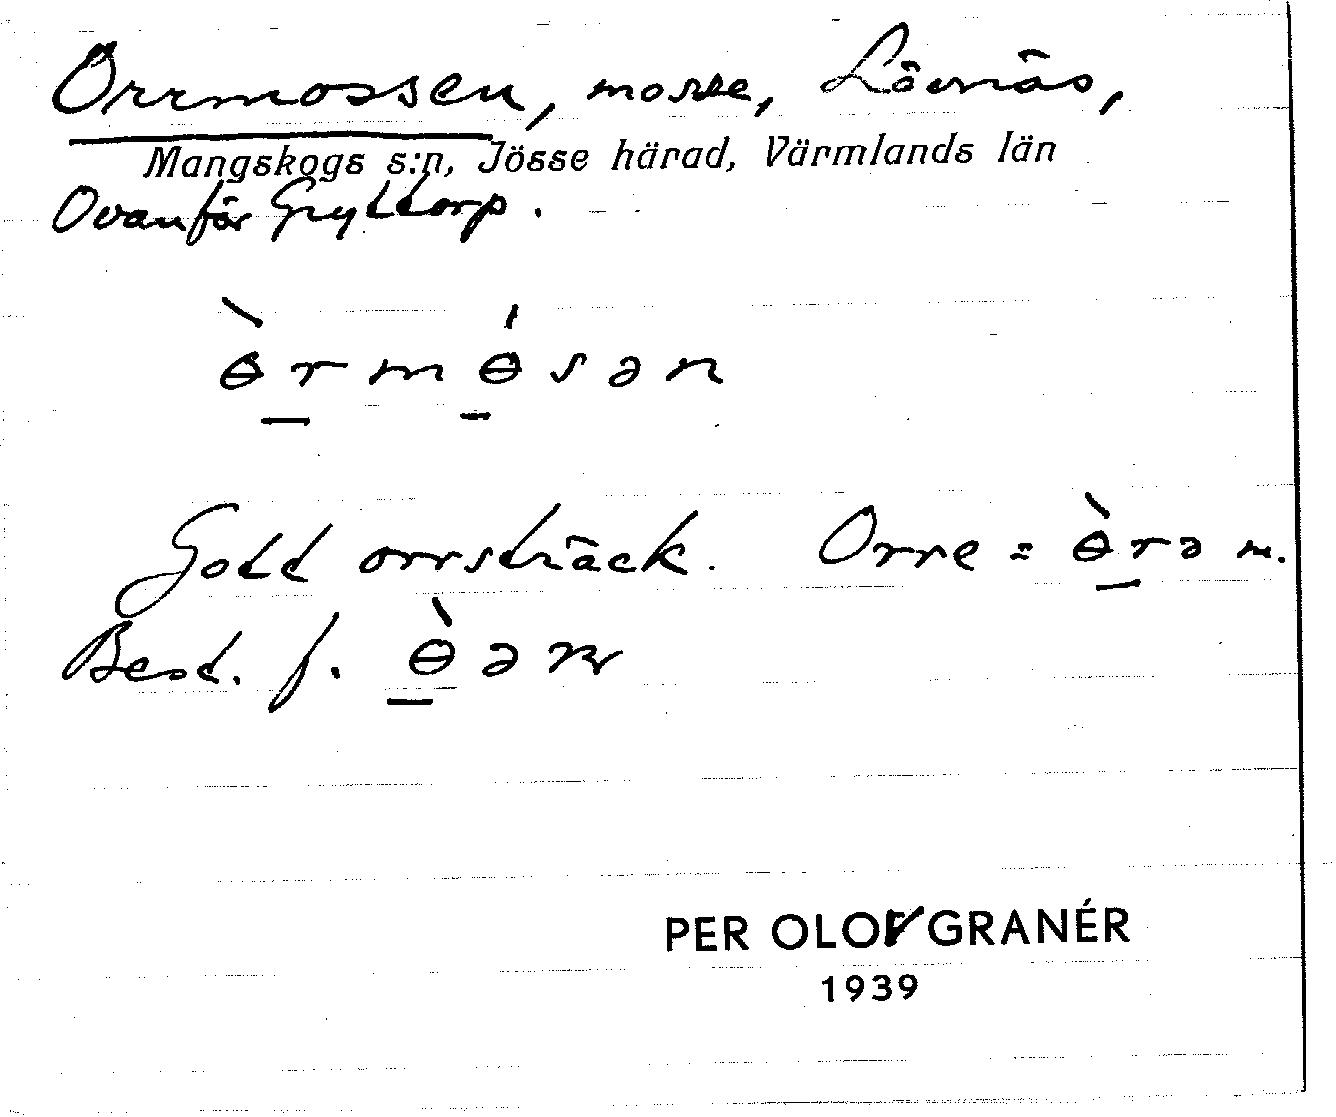 Orrmossen, mosse, Lövnäs,
Mangskogs s:n, Jösse härad, Värmlands län
Ovanför Gryttorp.
ɵ̀rmɵ́sən
Gott orrsträck. Orre = ɵ̀rə m.
Best. f. ɵ̀ən
PER OLOV GRANÉR
1939